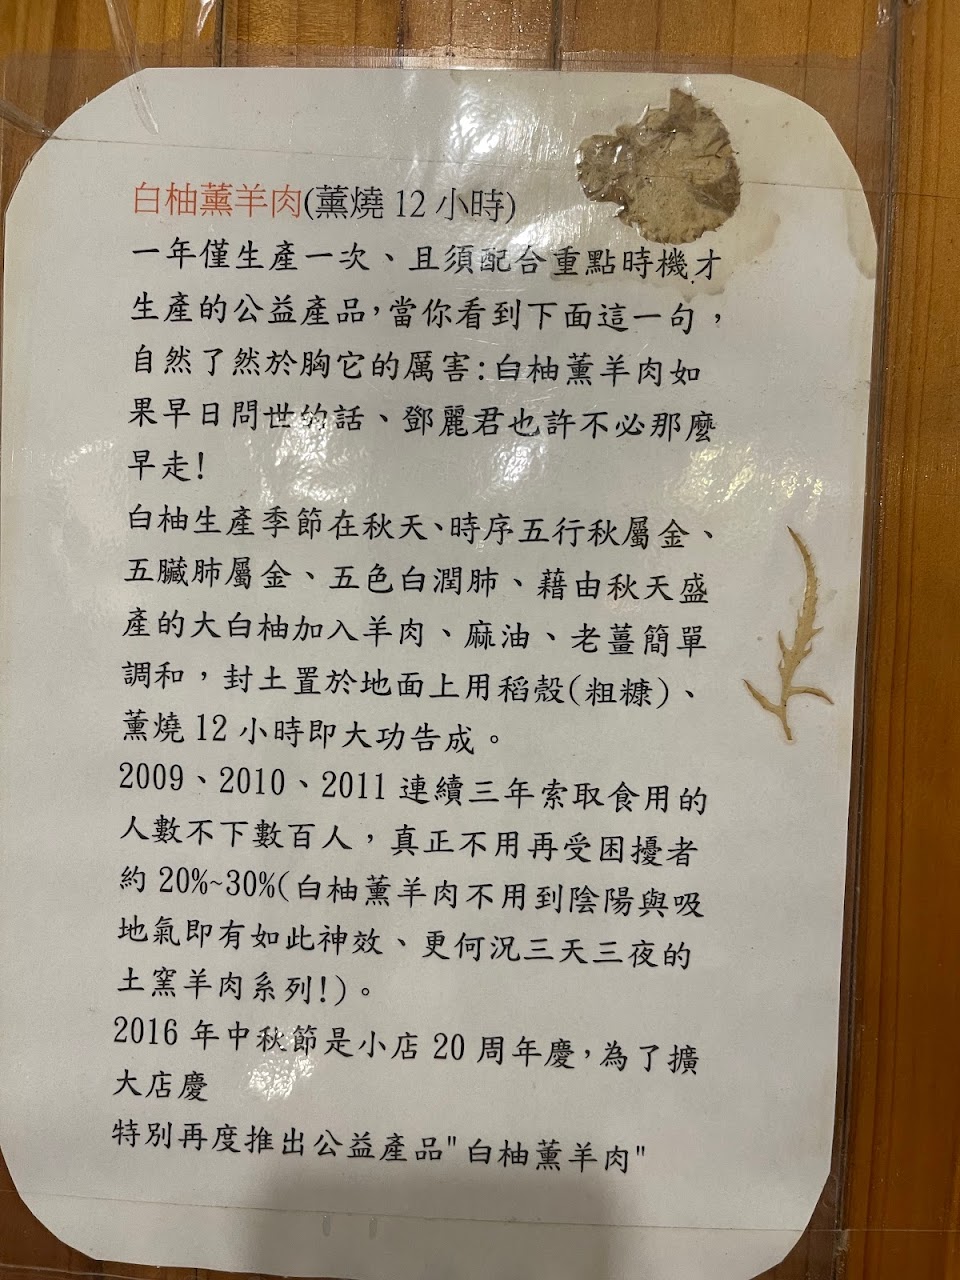 白柚薰羊肉(薰燒 12 小時)
一年僅生產一次、且須配合重點時機才
生產的公益產品,當你看到下面這一句,
自然了然於胸它的厲害:白柚薰羊肉如
果早日問世的話、鄧麗君也許不必那麼
早走!
白柚生產季節在秋天、時序五行秋屬金、
五臟肺屬金、五色白潤肺、藉由秋天盛
產的大白柚加入羊肉、麻油、老薑簡單
調和,封土置於地面上用稻殼(粗糠)、
薰燒 12 小時即大功告成。
2009、2010、2011 連續三年索取食用的
人數不下數百人,真正不用再受困擾者
約 20%~30%(白柚薰羊肉不用到陰陽與吸
地氣即有如此神效、更何況三天三夜的
土窯羊肉系列!)。
2016 年中秋節是小店 20 周年慶,為了擴
大店慶
特別再度推出公益產品"白柚薰羊肉"